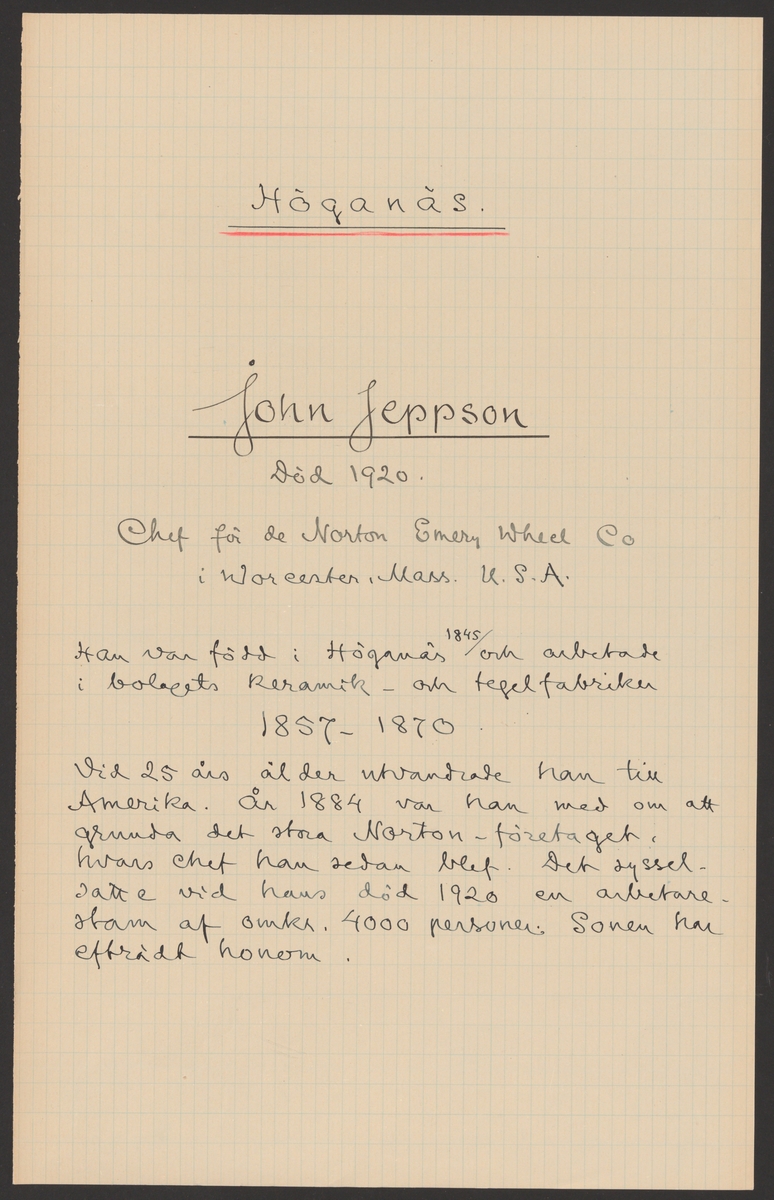 Höganäs.
John Jeppson
Död 1920.
Chef för de Norton Emery Wheel Co
i Worcester, Mass. U.S.A.
Han var född i Höganäs 1845/ och arbetade
i bolagets keramik- och tegelfabriker
1857- 1870.
Vid 25 års ålder utvandrade han till
Amerika. År 1884 var han med om att
grunda det stora Norton-företaget,
hvars chef han sedan blef. Det syssel-
satte vid hans död 1920 en arbetare-
stam af omkr. 4000 personer. Sonen har
efträdt honom.